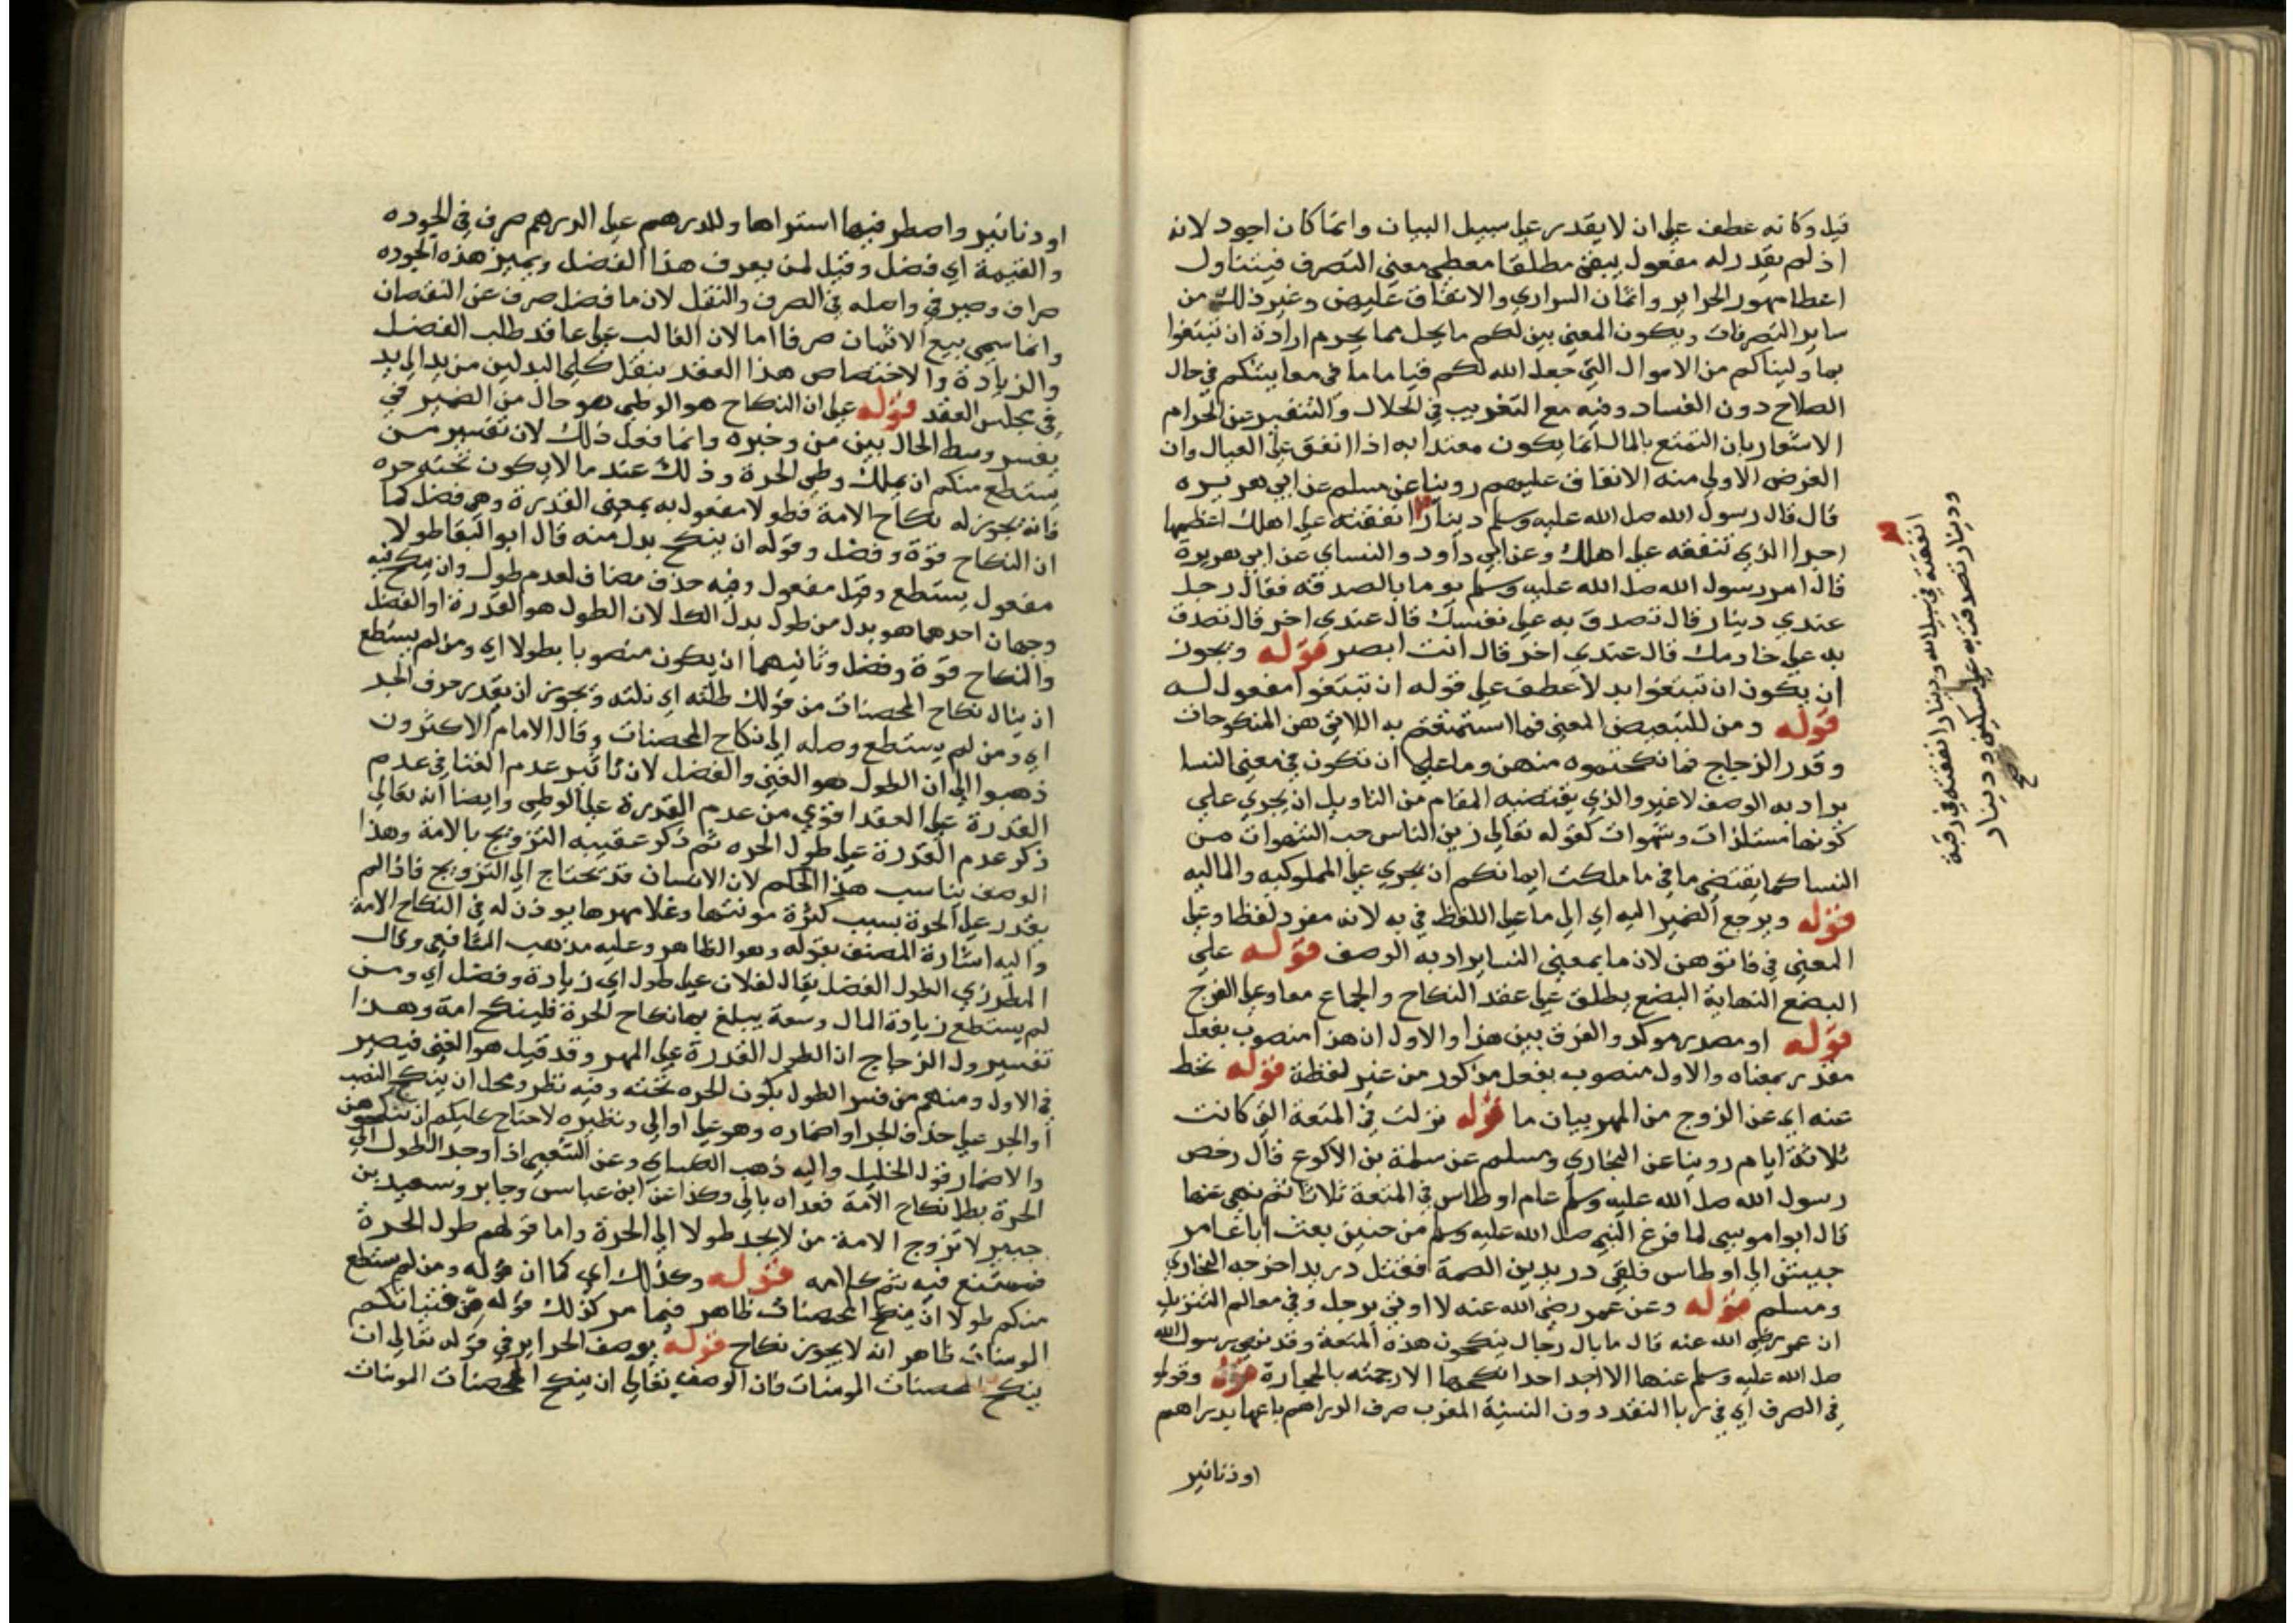 قيل وكانه عطف على ان لا يقدر على سبيل البيان وانما كان اجود لانه
اذ لم يقدر له مفعول يبقى مطلقا معطى معنى التصرف فيتناول
اعطا مهور الحراير واثمان السراري والانفاق عليهن وغير ذلك من
ساير التصرفات ويكون المعنى بين لكم ما يحل مما يحرم ارادة ان تبتغوا
بما ولينا كم من الاموال التي جعل الله لكم قياما ما في معايشكم في حال
الصلاح دون الفساد وفيه مع التغريب في الحلال والتنفير عن الحرام
الاشعار بان التمتع بالمال انما يكون معتدا به اذا انفق على العيال وان
الغرض الاولى منه الانفاق عليهم روينا عن مسلم عن ابي هريره
قال قال رسول الله صلى الله عليه وسلم دينارا انفقته على اهلك اعظمها
اجرا الذي تنفقه على اهلك وعن ابي داود والنساي عن ابي هريرة
قال امر رسول الله صلى الله عليه وسلم يوما بالصدقة فقال رجل
عندي دينار قال تصدق به على نفسك قال عندي اخر قال تصدق
به على خادمك قال عندي اخر قال انت ابصر قوله ويجوز
ان يكون ان تبتغوا بدلا عطف على قوله ان تبتغوا مفعول له
قوله ومن للتبعيض المعنى فما استمتعتم به اللاتي هن المنكوحات
وقدر الزجاج فما نكحتموه منهن وما على ان تكون في معنى النسا
يراد به الوصف لا غير والذي يقتضيه المقام من التاويل ان يجري على
كونها مستلذات وشهوات كقوله تعالى زين للناس حب الشهوات من
النسا كما يقتضي ما في ما ملكت ايمانكم ان يجري على المملوكيه والماليه
قوله ويرجع الضمير اليه اي الى ما على اللفظ في به لانه مفرد لفظا وعلى
المعنى في فاتوهن لان ما بمعنى النسا يراد به الوصف قوله على
البضع النهاية البضع يطلق على عقد النكاح والجماع معا وعلى الفرج
قوله او مصدر موكد والفرق بين هذا والاول ان هذا منصوب بفعل
مقدر بمعناه والاول منصوب بفعل مذكور من غير لفظة قوله تحط
عنه اي عن الزوج من المهر بيان ما قوله نزلت في المتعة التي كانت
ثلاثة ايام روينا عن البخاري ومسلم عن سلمة بن الاكوع قال رخص
رسول الله صلى الله عليه وسلم عام اوطاس في المتعة ثلاثا ثم نهى عنها
قال ابوا موسى لما فرغ النبي صلى الله عليه وسلم من حنين بعث ابا عامر
جيش الى اوطاس فلقي دريد بن الصمة فقتل دريد اخرجه البخاري
ومسلم قوله وعن عمر رضي الله عنه لا اوتي برجل وفي معالم التنزيل
ان عمر رضى الله عنه قال ما بال رجال ينكحون هذه المتعة وقد نهى رسول الله
صلى الله عليه وسلم عنها الا اجد احدا نكحها الا رجمته بالحجارة قوله وقوله
في الصرف اي في ربا النقد دون النسية المغرب صرف الدراهم باعها بدراهم
او دنانير
انفقته في سبيل الله ودينارا انفقته في رقبة
ودينار تصدقت به على مسكين ودينار
صح
او دنانير واصطرفيها استراها وللدرهم على الدرهم صرف في الجوده
والقيمة اي فضل وقيل لمن يعرف هذا الفضل ويميز هذه الجوده
صراف وصيرفي واصله في الصرف والنقل لان ما فضل صرف عن النقصان
وانما سمي بيع الاثمان صرفا اما لان الغالب على عاقد طلب الفضل
والزيادة والاختصاص هذا العقد بنقل كلى البدلين من يد الى يد
في مجلس العقد قوله على ان النكاح هو الوطي هو حال من الضمير في
يفسر وسط الحال بين من وخبره وانما فعل ذلك لان تفسير من
يستطع منكم ان يملك وطي الحرة وذلك عند ما لا يكون تحته حره
فانه يجوز له نكاح الامة فطولا مفعول به بمعنى القدرة وهي فضل كما
ان النكاح قوة وفضل وقوله ان ينكح بدل منه قال ابو البقا طولا
مفعول يستطع وقيل مفعول وفيه حذف مضاف لعدم طول وان ينكح فيه
وجهان احدهما هو بدل من طول بدل الكل لان الطول هو القدرة او الفضل
والنكاح قوة وفضل وثانيهما ان يكون منصوبا بطولا اي ومن لم يستطع
ان ينال نكاح المحصنات من قولك طلته اي نلته ويجوز ان يقدر حرف الجر
اي ومن لم يستطع وصله الى نكاح المحصنات وقال الامام الاكثرون
ذهبوا الى ان الطول هو الغنى والفضل لان تاثير عدم الغنا في عدم
القدرة على العقد اقوي من عدم القدرة على الوطي وايضا انه تعالى
ذكر عدم القدرة على طول الحره ثم ذكر عقيبه التزويج بالامة وهذا
الوصف يناسب هذا الحكم لان الانسان قد يحتاج الى التزويج فاذا لم
يقدر على الحرة بسبب كثرة مونتها وغلا مهرها يوذن له في النكاح الامة
واليه اشارة المصنف بقوله وهو الظاهر وعليه مذهب الشافعي وقال
المطرزي الطول الفضل يقال لفلان على طول اي زيادة وفضل اي ومن
لم يستطع زيادة المال وسعة يبلغ بها نكاح الحرة فلينكح امة وهذا
تفسير ول الزجاج ان الطول القدرة على المهر وقد قيل هو الغنى فيصير
في الاول ومنهم من فسر الطول بكون الحره تحته وفيه نظر ومحل ان ينكح النصب
او الجر على حذف الجر او اضماره وهو على او الى ونظيره لا جناح عليكم ان تنكحوهن
والاضمار قول الخليل واليه ذهب الكساي وعن الشعبي اذا وجد الطول الى
الحرة بطل نكاح الامة فعداه بالى وكذا عن ابن عباس وجابر وسعيد بن
جبير لا تزوج الامة من لا يجد طولا الى الحرة واما قولهم طول الحرة
فمتسع فيه تم كلامه قوله وكذلك اي كما ان قوله ومن لم يستطع
منكم طولا ان ينكح المحصنات ظاهر فيما مر كذلك قوله من فتياتكم
المومنات ظاهر انه لا يجوز نكاح قوله بوصف الحراير في قوله تعالى ان
ينكح المحصنات المومنات فان الوصف تعالى ان ينكح المحصنات المومنات